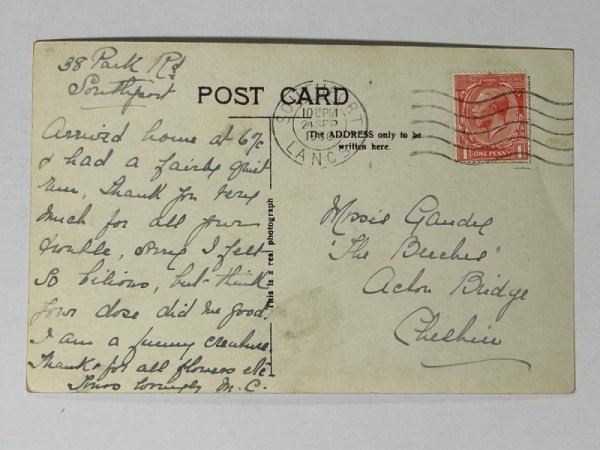 38 Park Rd
Southport
POST CARD
Arrived home at 6
& had a fairly quiet
run, Thank you very
much for all your
trouble, sorry I felt
so bilious, but think
your dose did me good.
I am a funny creature
Thanks for all flowers etc
Yours lovingly M. C.
This is a real photograph
The ADDRESS only to be
written here.
SOUTHPORT
10 15PM
24 SEP
LANCS
POSTAGE REVENUE
ONE PENNY
Missie Gandy
"The Beeches"
Acton Bridge
Cheshire